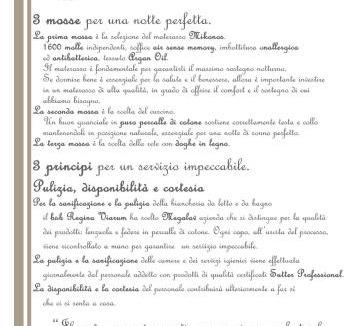 3 mosse per una notte perfetta.
La prima mossa è la selezione del materasso Mikonos.
1600 molle indipendenti, soffice air sense memory, imbottitura anallergica
ed antibatterica, tessuto Argan Oil.
Il materasso è fondamentale per garantirti il massimo sostegno notturno.
Se dormire bene è essenziale per la salute e il benessere, allora è importante investire
in un materasso di alta qualità, in grado di offrire il comfort e il sostegno di cui
abbiamo bisogno.
La seconda mossa è la scelta del cuscino.
Un buon guanciale in puro percalle di cotone sostiene correttamente testa e collo
mantenendoli in posizione naturale, essenziale per una notte di sonno perfetto.
La terza mossa è la scelta della rete con doghe in legno.
3 principi per un servizio impeccabile.
Pulizia, disponibilità e cortesia
Per la sanificazione e la pulizia della biancheria da letto e da bagno
il b&b Regina Viarum ha scelto Megalav azienda che si distingue per la qualità
dei prodotti: lenzuola e federe in percalle di cotone. Ogni capo, all'uscita del processo,
viene ricontrollato a mano per garantire un servizio impeccabile.
La pulizia e la sanificazione delle camere e dei servizi igienici viene effettuata
giornalmente dal personale addetto con prodotti di qualità certificati Sutter Professional.
La disponibilità e la cortesia del personale contribuirà ulteriormente a far sì
che vi si senta a casa.